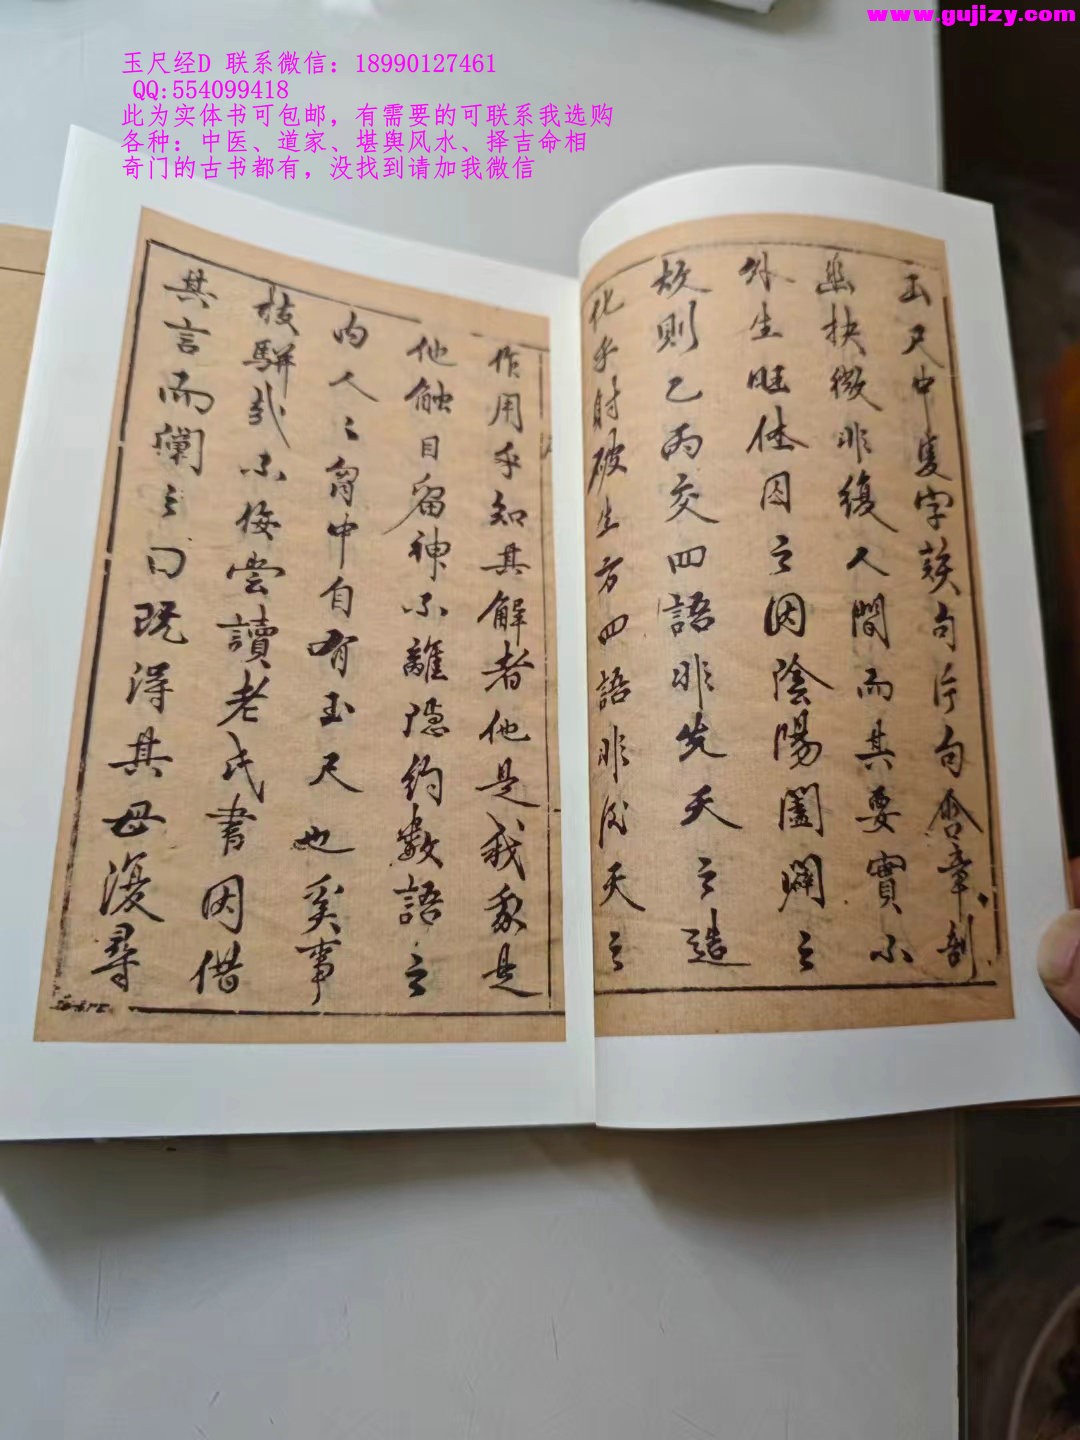 www.gujizy.com
玉尺经D 联系微信：18990127461
QQ:554099418
此为实体书可包邮，有需要的可联系我选购
各种：中医、道家、堪舆风水、择吉命相
奇门的古书都有，没找到请加我微信
玉尺中隻字蔟句片句含章剖
幽抉微非復人間而其要實不
外生旺休囚之因陰陽闔闢之
故則乙丙交四語非先天之造
化乎射破生方四語非後天之
作用乎知其解者他是我我是
他觸目留神不離隱約數語之
内人之胸中自有玉尺也奚事
枝駢哉不侫嘗讀老氏書因借
其言而闡之曰既得其母復尋